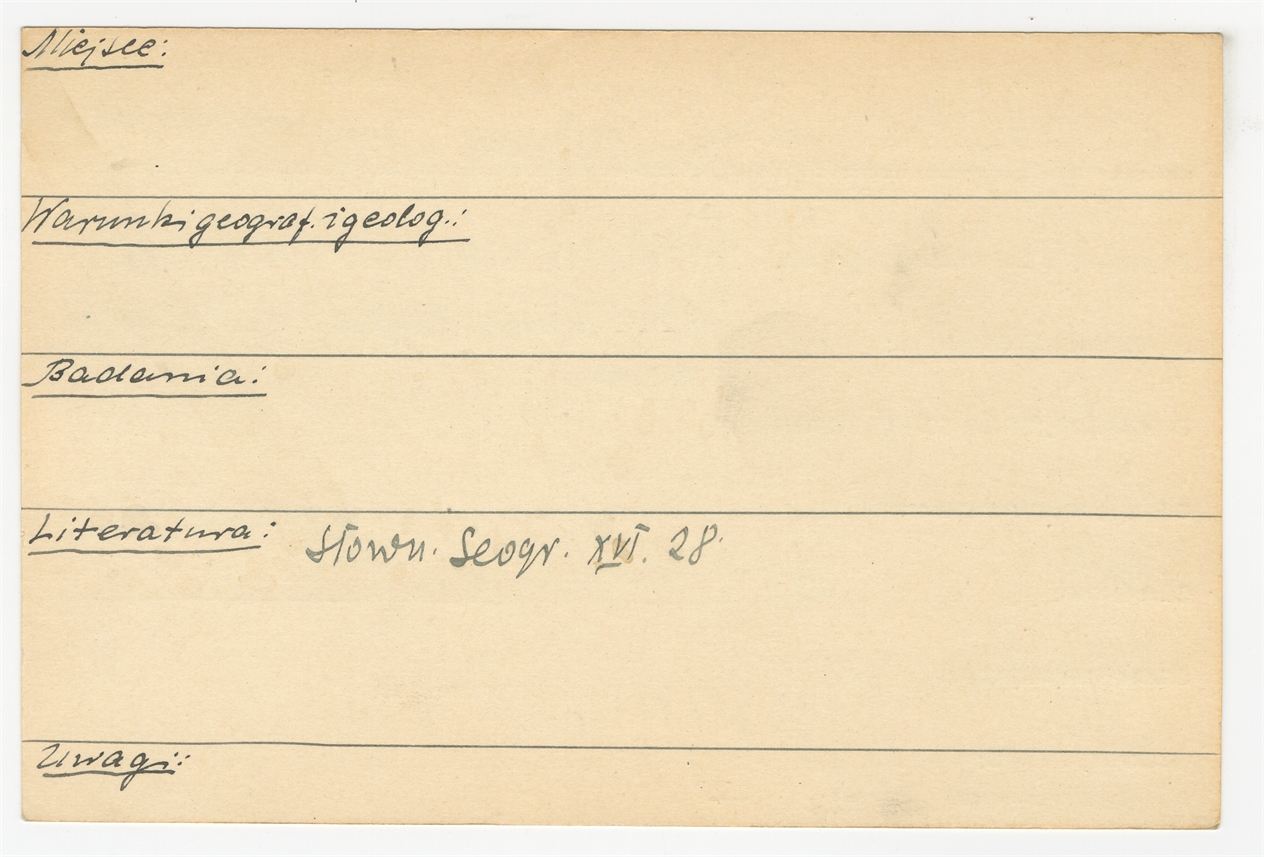 Miejsce:
Warunki geograf. i geolog.:
Badania:
Literatura: Słown. Geogr. XVI. 28.
Uwagi: